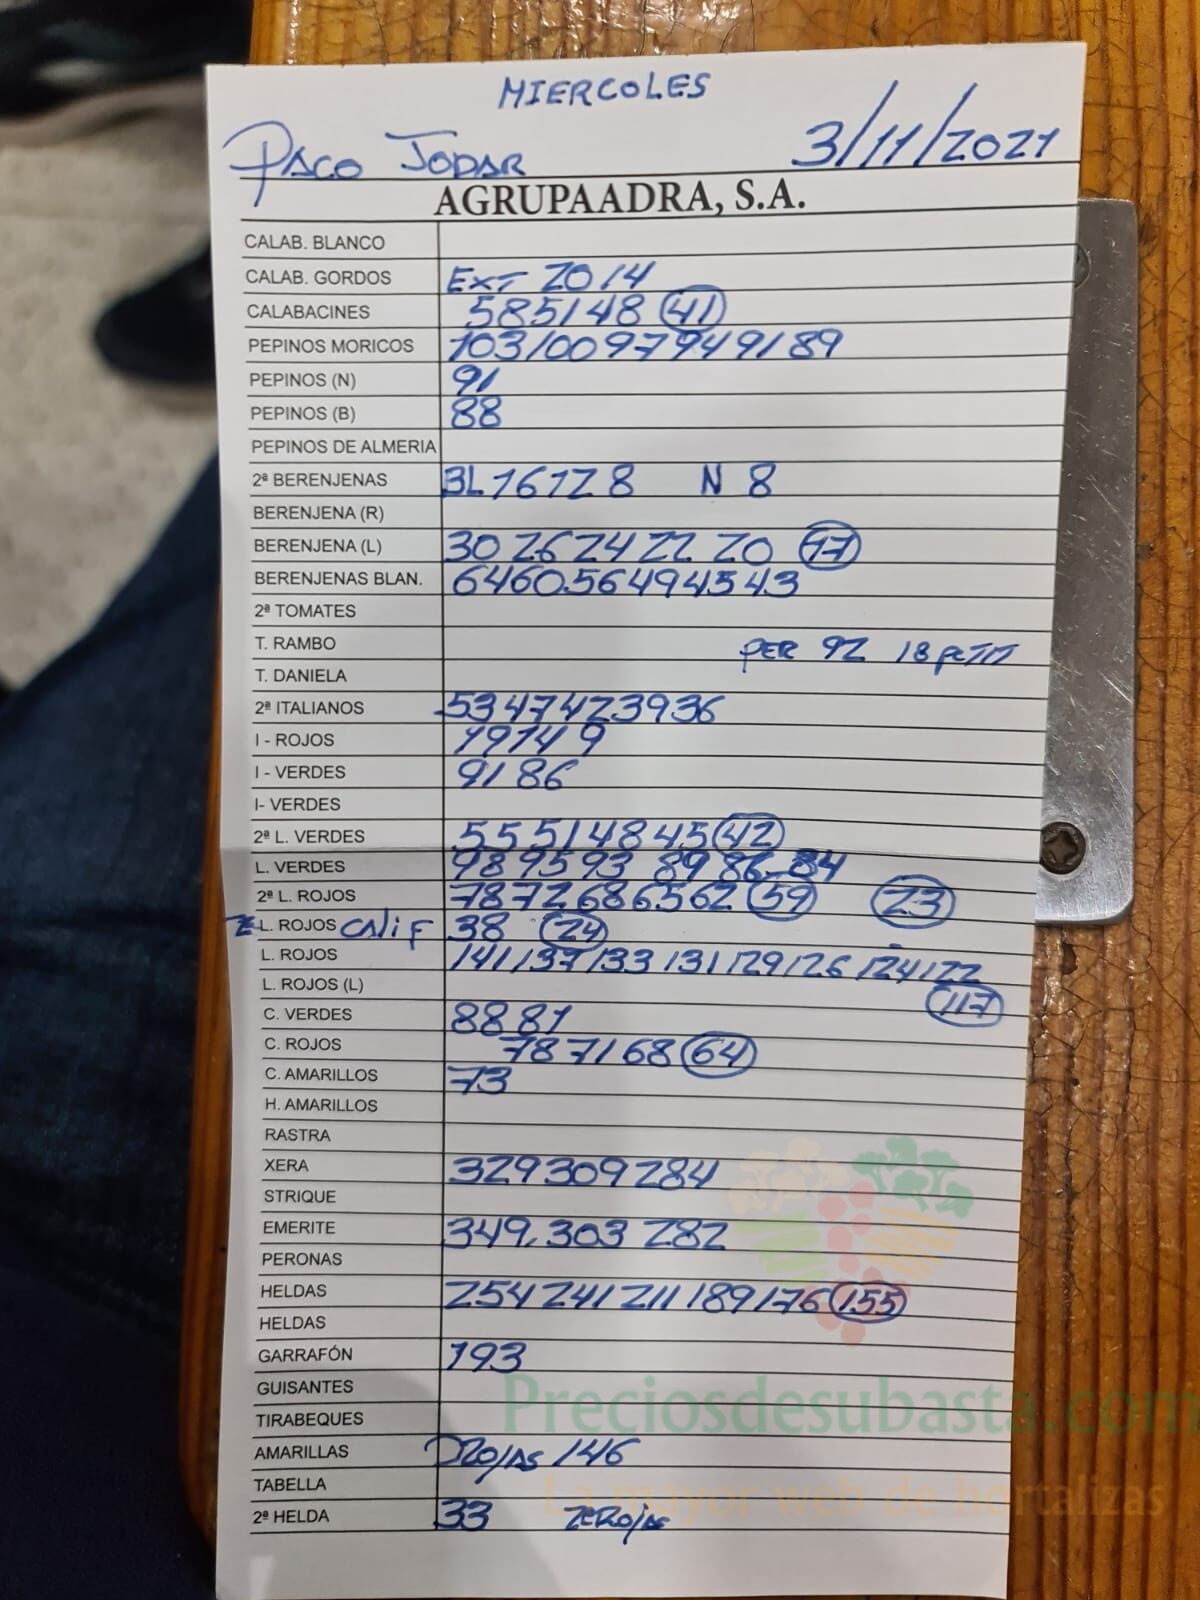 MIERCOLES
PACO JODAR 3/11/2021
AGRUPAADRA, S.A.
CALAB. BLANCO
CALAB. GORDOS EXT 20 14
CALABACINES 58 51 48 41
PEPINOS MORICOS 103 100 97 94 91 89
PEPINOS (N) 91
PEPINOS (B) 88
PEPINOS DE ALMERIA
2ª BERENJENAS BL 16 12 8 N 8
BERENJENA (R)
BERENJENA (L) 30 26 24 22 20 17
BERENJENAS BLAN. 64 60 56 49 45 43
2ª TOMATES
T. RAMBO PER 92 18 PETIT
T. DANIELA
2ª ITALIANOS 53 47 42 39 36
I - ROJOS 19 14 9
I - VERDES 91 86
I- VERDES
2ª L. VERDES 55 51 48 45 42
L. VERDES 98 95 93 89 86 84
2ª L. ROJOS 78 72 68 65 62 59 23
2 L. ROJOS CALIF 38 24
L. ROJOS 141 137 133 131 129 126 124 122
L. ROJOS (L) 117
C. VERDES 88 81
C. ROJOS 78 71 68 64
C. AMARILLOS 73
H. AMARILLOS
RASTRA
XERA 329 309 284
STRIQUE
EMERITE 349, 303 282
PERONAS
HELDAS 254 241 211 189 176 155
HELDAS
GARRAFÓN 193
GUISANTES
Preciosdesubasta.com
TIRABEQUES
AMARILLAS ROJAS 146
TABELLA
La mayor web de hortalizas
2ª HELDA 33